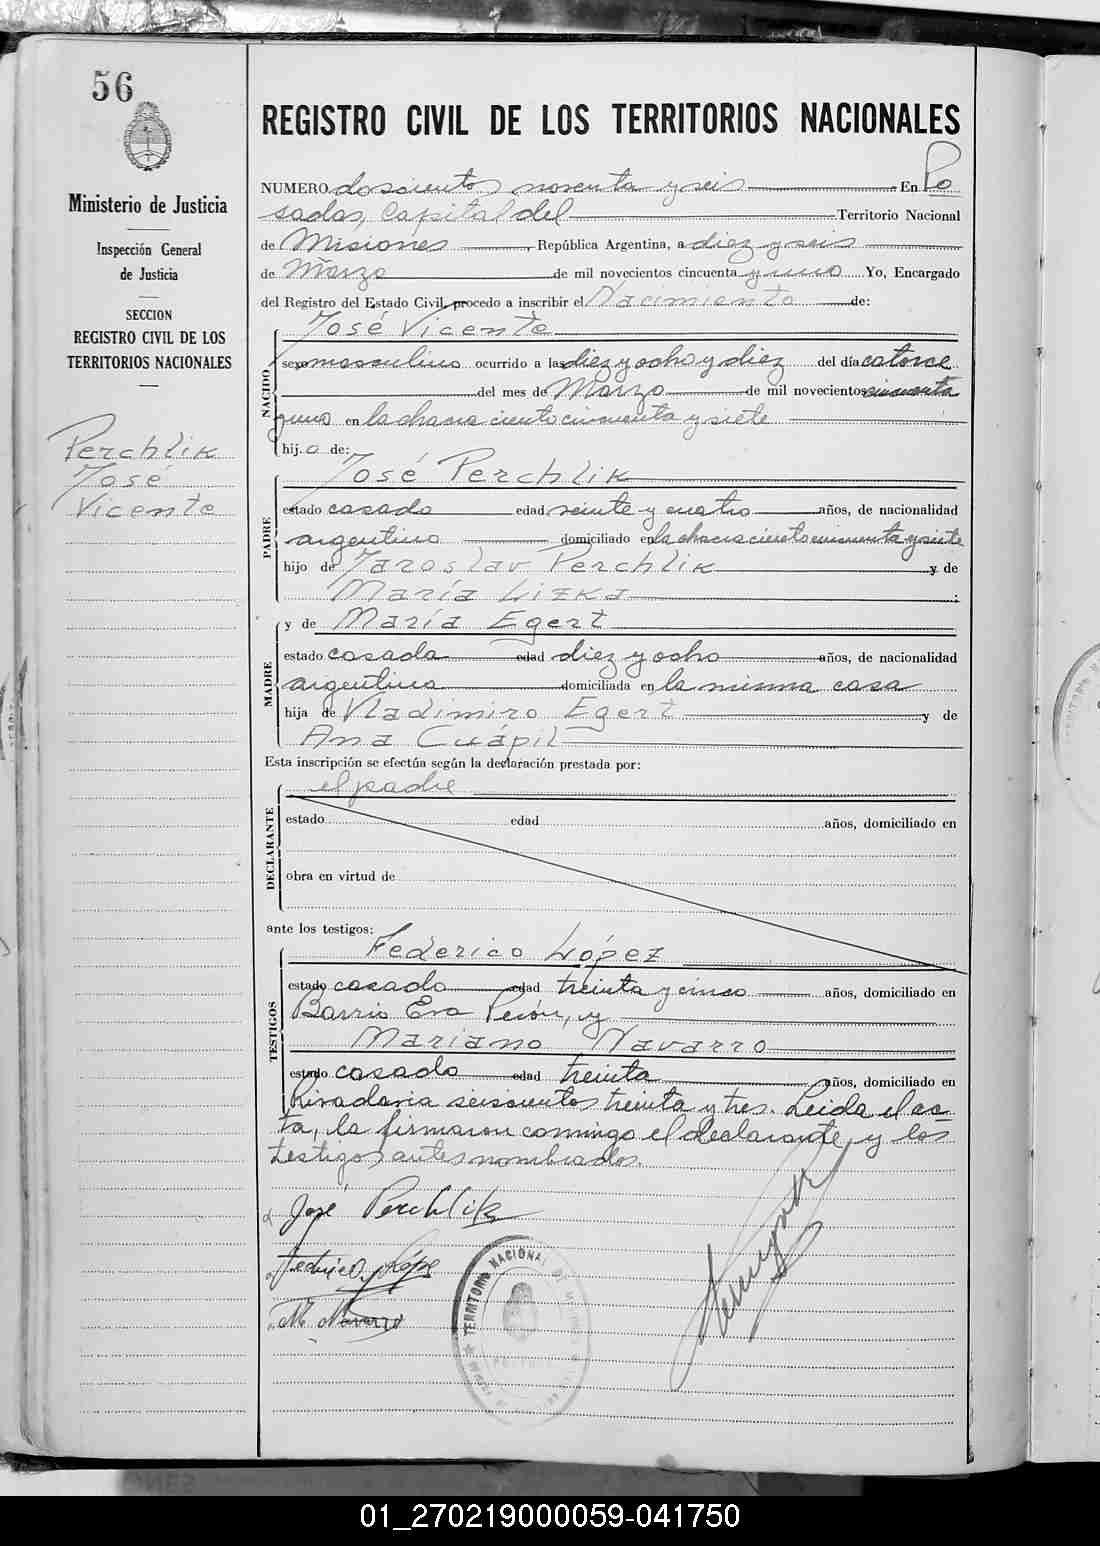 56
Ministerio de Justicia
Inspección General
de Justicia
SECCION
REGISTRO CIVIL DE LOS
TERRITORIOS NACIONALES
Perchlik
José
Vicente
REGISTRO CIVIL DE LOS TERRITORIOS NACIONALES
NUMERO doscientos noventa y seis En Po
sadas, Capital del Territorio Nacional
de Misiones, República Argentina, a diez y seis
de Marzo de mil novecientos cincuenta y uno Yo, Encargado
del Registro del Estado Civil, procedo a inscribir el Nacimiento de:
José Vicente
NACIDO
sexo masculino ocurrido a las diez y ocho y diez del día catorce
del mes de Marzo de mil novecientos cincuenta
y uno en la chacra ciento cincuenta y siete
hij o de:
José Perchlik
PADRE
estado casado edad veinte y cuatro años, de nacionalidad
argentino domiciliado en la chacra ciento cincuenta y siete
hijo de Jaroslav Perchlik y de
María Lizka ;
y de María Egert
MADRE
estado casada edad diez y ocho años, de nacionalidad
argentina domiciliada en la misma casa
hija de Vladimiro Egert y de
Ana Cuápil
Esta inscripción se efectúa según la declaración prestada por:
el padre
DECLARANTE
estado edad años, domiciliado en
obra en virtud de
ante los testigos:
Federico López
TESTIGOS
estado casado edad treinta y cinco años, domiciliado en
Barrio Eva Perón, y
Mariano Navarro
estado casado edad treinta años, domiciliado en
Rivadavia seiscientos treinta y tres. Leida el ac-
ta, la firmaron conmigo el declarante, y los
testigos antes nombrados.
José Perchlik
Federico López
M. Navarro
TERRITORIO NACIONAL DE MISIONES
01_270219000059-041750